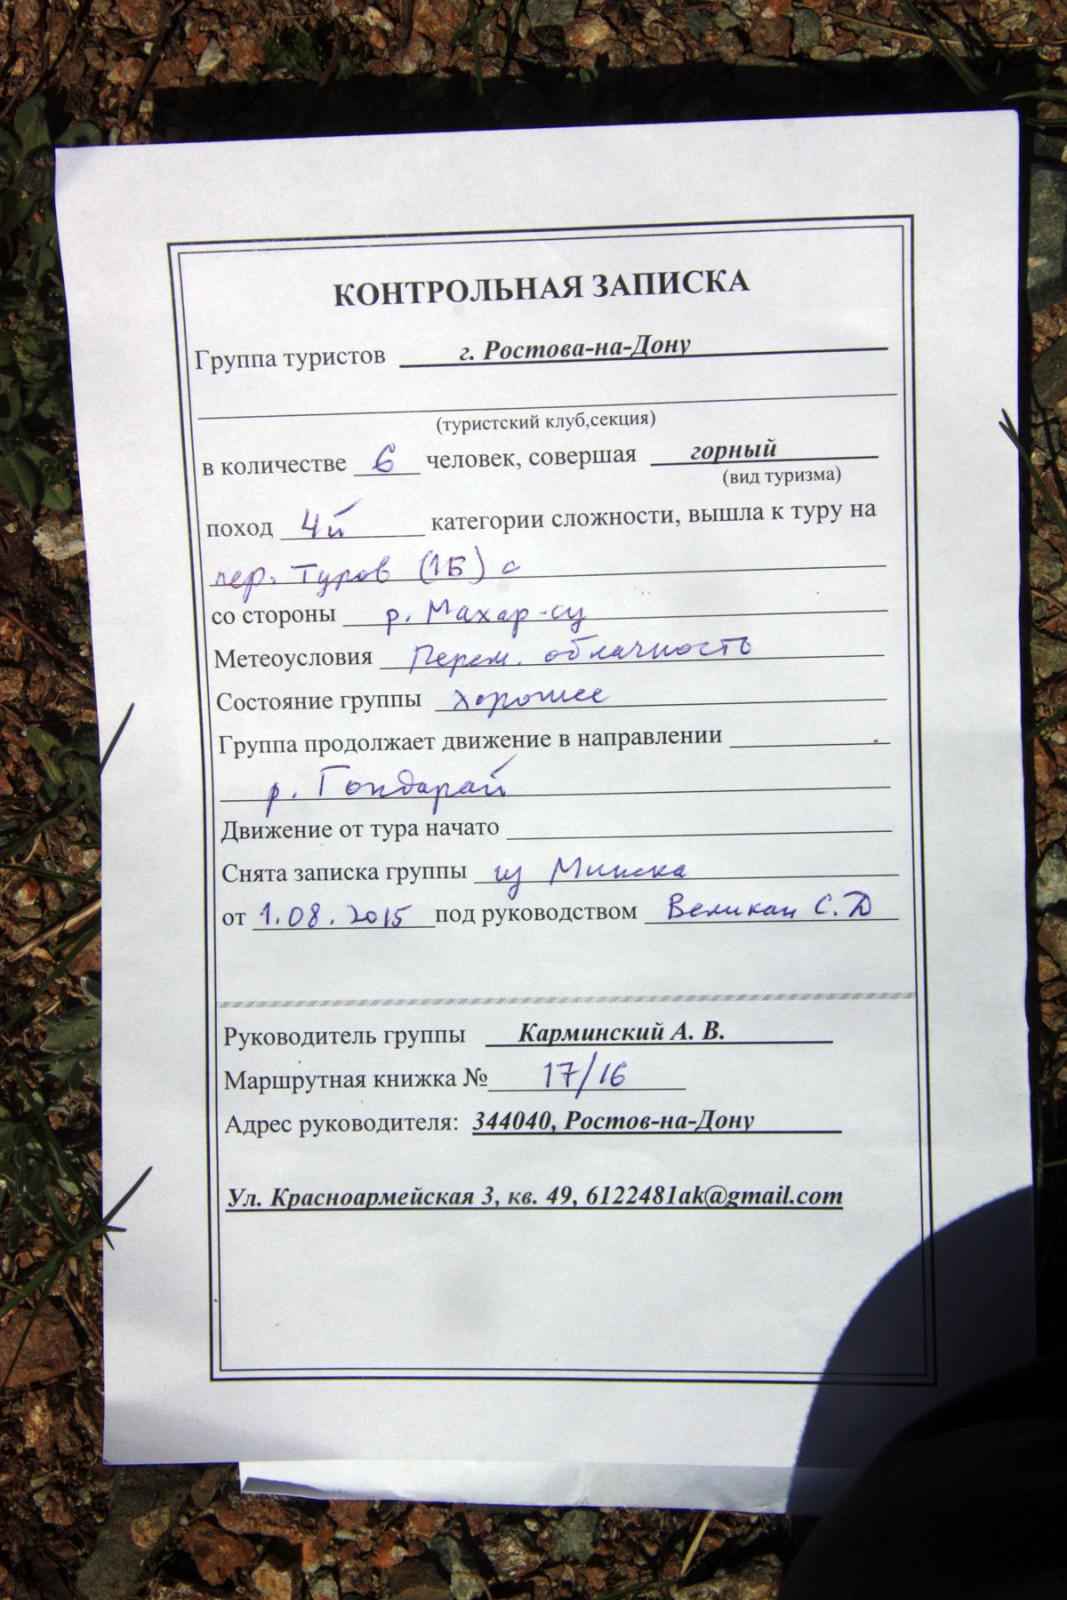 КОНТРОЛЬНАЯ ЗАПИСКА
Группа туристов г. Ростова-на-Дону
(туристский клуб,секция)
в количестве 6 человек, совершая горный
(вид туризма)
поход 4й категории сложности, вышла к туру на
пер. Туров (1Б) с
со стороны р. Махар-су
Метеоусловия Перем. облачность
Состояние группы хорошее
Группа продолжает движение в направлении
р. Гондарай
Движение от тура начато
Снята записка группы из Минска
от 1.08.2015 под руководством Великан С.Д
Руководитель группы Карминский А. В.
Маршрутная книжка № 17/16
Адрес руководителя: 344040, Ростов-на-Дону
Ул. Красноармейская 3, кв. 49, 6122481ak@gmail.com